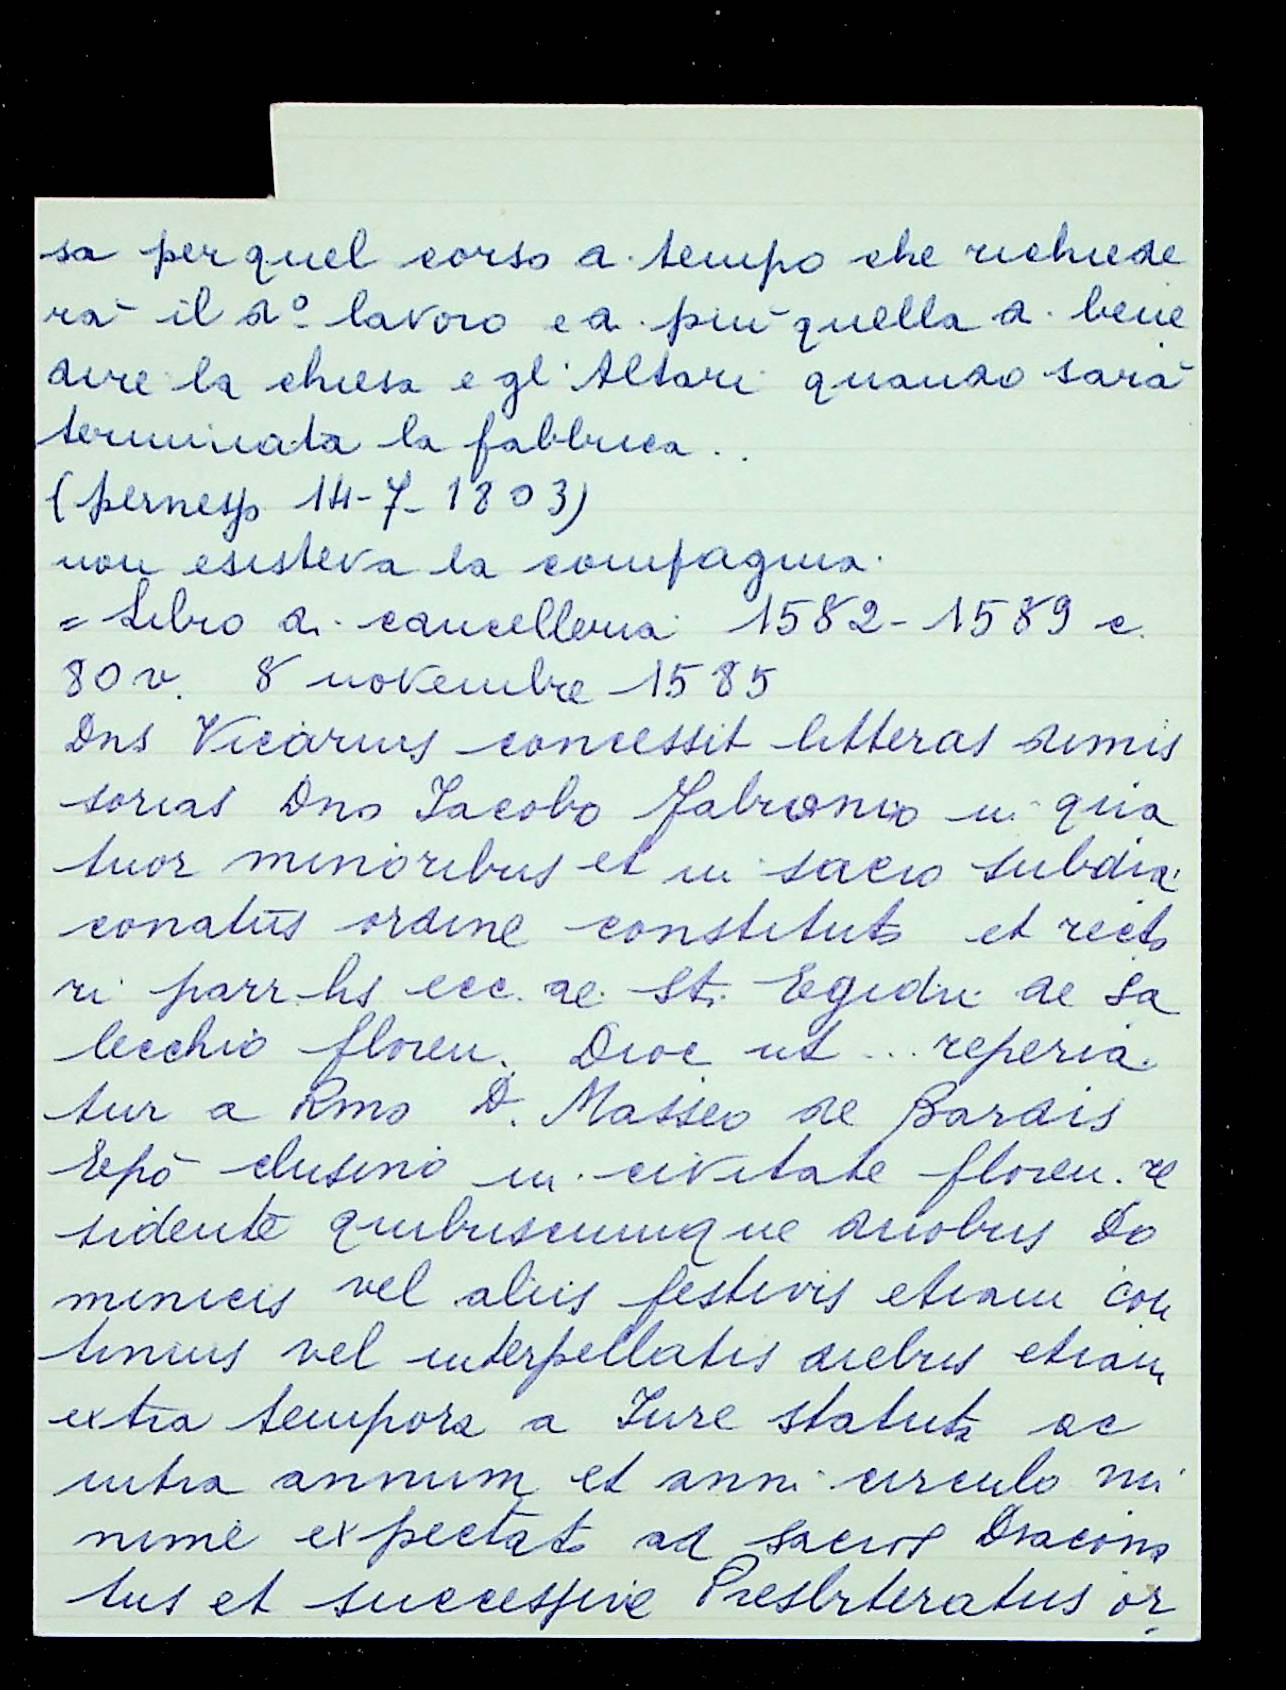 sa per quel corso d. tempo che richiede
rà il dº lavoro e d. più quella d. bene
dire la chiesa e gl' Altari quando sarà
terminata la fabbrica..
(per nesp 14-7-1803)
non esisteva la compagnia.
= Libro di cancelleria 1582-1589 c.
80 v. 8 novembre 1585
Dns Vicarius concessit litteras dimis
sorias Dno Iacobo Fabronio in qua
tuor minoribus et in sacro subdia
conatus ordine constituto et recto
ri parr-lis ecc. ae St. Egidii de Sa
lecchio floren. Dioc ut ... reperia.
tur a Rmo D. Masseo de Bardis
Epō clusino in civitate floren. re
sidente quibuscumque duobus Do
minicis vel aliis festivis etiam con
tinuis vel interpellatis diebus etiam
extra tempora a Iure statuta ac
intra annum et anni circulo mi
nime expectato ad sacros Diacona
tus et successive Presbiteratus or